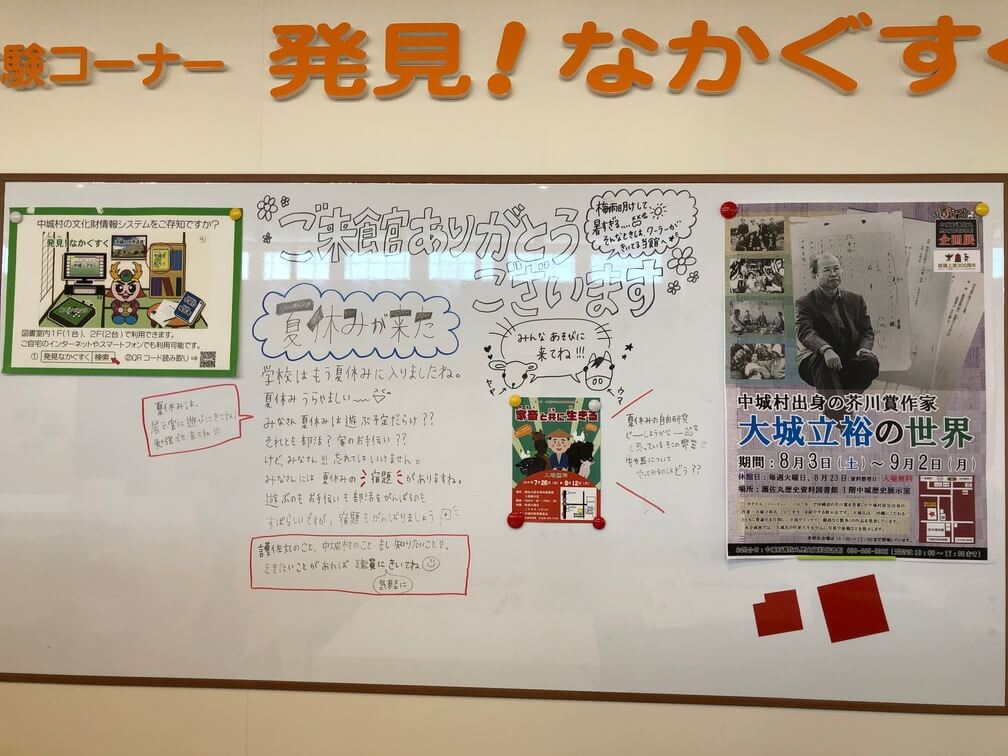 験コーナー 発見!なかぐすく
中城村の文化財情報システムをご存知ですか?
発見!なかぐすく
図書室内1F(1台)、2F(2台)で利用できます。
ご自宅のインターネットやスマートフォンでも利用可能です。
① 発見なかぐすく 検索 ②QRコード読み取り⇒
ご来館ありがとう
ございます
梅雨明けして、
暑すぎる....
そんなときは、クーラーが
きいてる当館へ
夏休みが来た
学校はもう夏休みに入りましたね。
夏休みうらやましい
みなさん夏休みは遊ぶ予定だらけ??
それとも部活?家のお手伝い??
けど、みなさん!!!忘れてはいけません。
みなさんには夏休みの宿題がありますね。
遊ぶのもお手伝いも部活をがんばるのも
すばらしいですが、宿題もがんばりましょう
夏休みは、
展示室に遊びにきてね!
護佐丸のこと、中城村のこともし知りたいこと、
ききたいことがあれば職員にきいてね
気軽に
みんなあそびに
来てね!!!
家畜と共に生きる
7月26日(金) 8月12日(月)
夏休みの自由研究
どーしようかなー
と思っているそこの
牛や馬について
やってみるのはどう??
企画展
中城村出身の芥川賞作家
大城立裕の世界
期間:8月3日(土)~9月2日(月)
休館日:毎週火曜日、8月23日(資料整理日) 入場無料
場所:護佐丸歴史資料図書館 1階中城歴史展示室